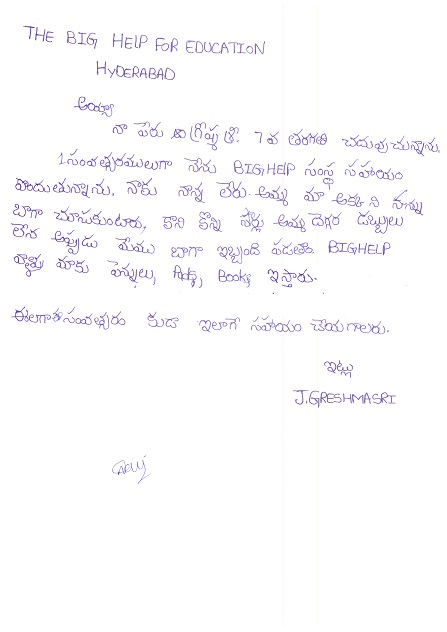 THE BIG HELP FOR EDUCATION
HYDERABAD
అయ్యా
నా పేరు గ్రేష్మ శ్రీ. 7వ తరగతి చదువుచున్నాను.
1సంవత్సరములుగా నేను BIGHELP సంస్థ సహాయం
పొందుతున్నాను. నాకు నాన్న లేరు. అమ్మ మా అక్క ని నన్ను
బాగా చూసుకుంటారు, కాని కొన్ని సార్లు అమ్మ దెగ్గర డబ్బులు
లేని అప్పుడు మేము బాగా ఇబ్బంది పడతాం. BIGHELP
మాకు పెన్నులు, Books ఇస్తారు.
సంవత్సరం కుడా ఇలాగే సహాయం చేయగాలరు.
ఇట్లు
J.GRESHMASRI